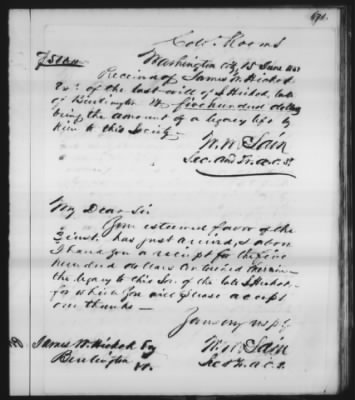 Colo. Rooms
Washington City 15 June
Received of James W. Hickok
Exr. of the last will of S Hickok, late
of Burlington Vt five hundred dollars
being the amount of a legacy left by
him to this Society
W. W. Lain
Sec. and Tr. A. C. S.
My Dear Sir
Your esteemed favor of the
inst. has just arrived & above
I hand you a receipt for the five
hundred dollars enclosed therein
the legacy to this Soc. of the late S Hickok,
for which you will please accept
our thanks
Yours very resp'y
James W. Hickok Esq
W. W. Lain
Burlington
Vt.
Sec & Tr. A. C. S.